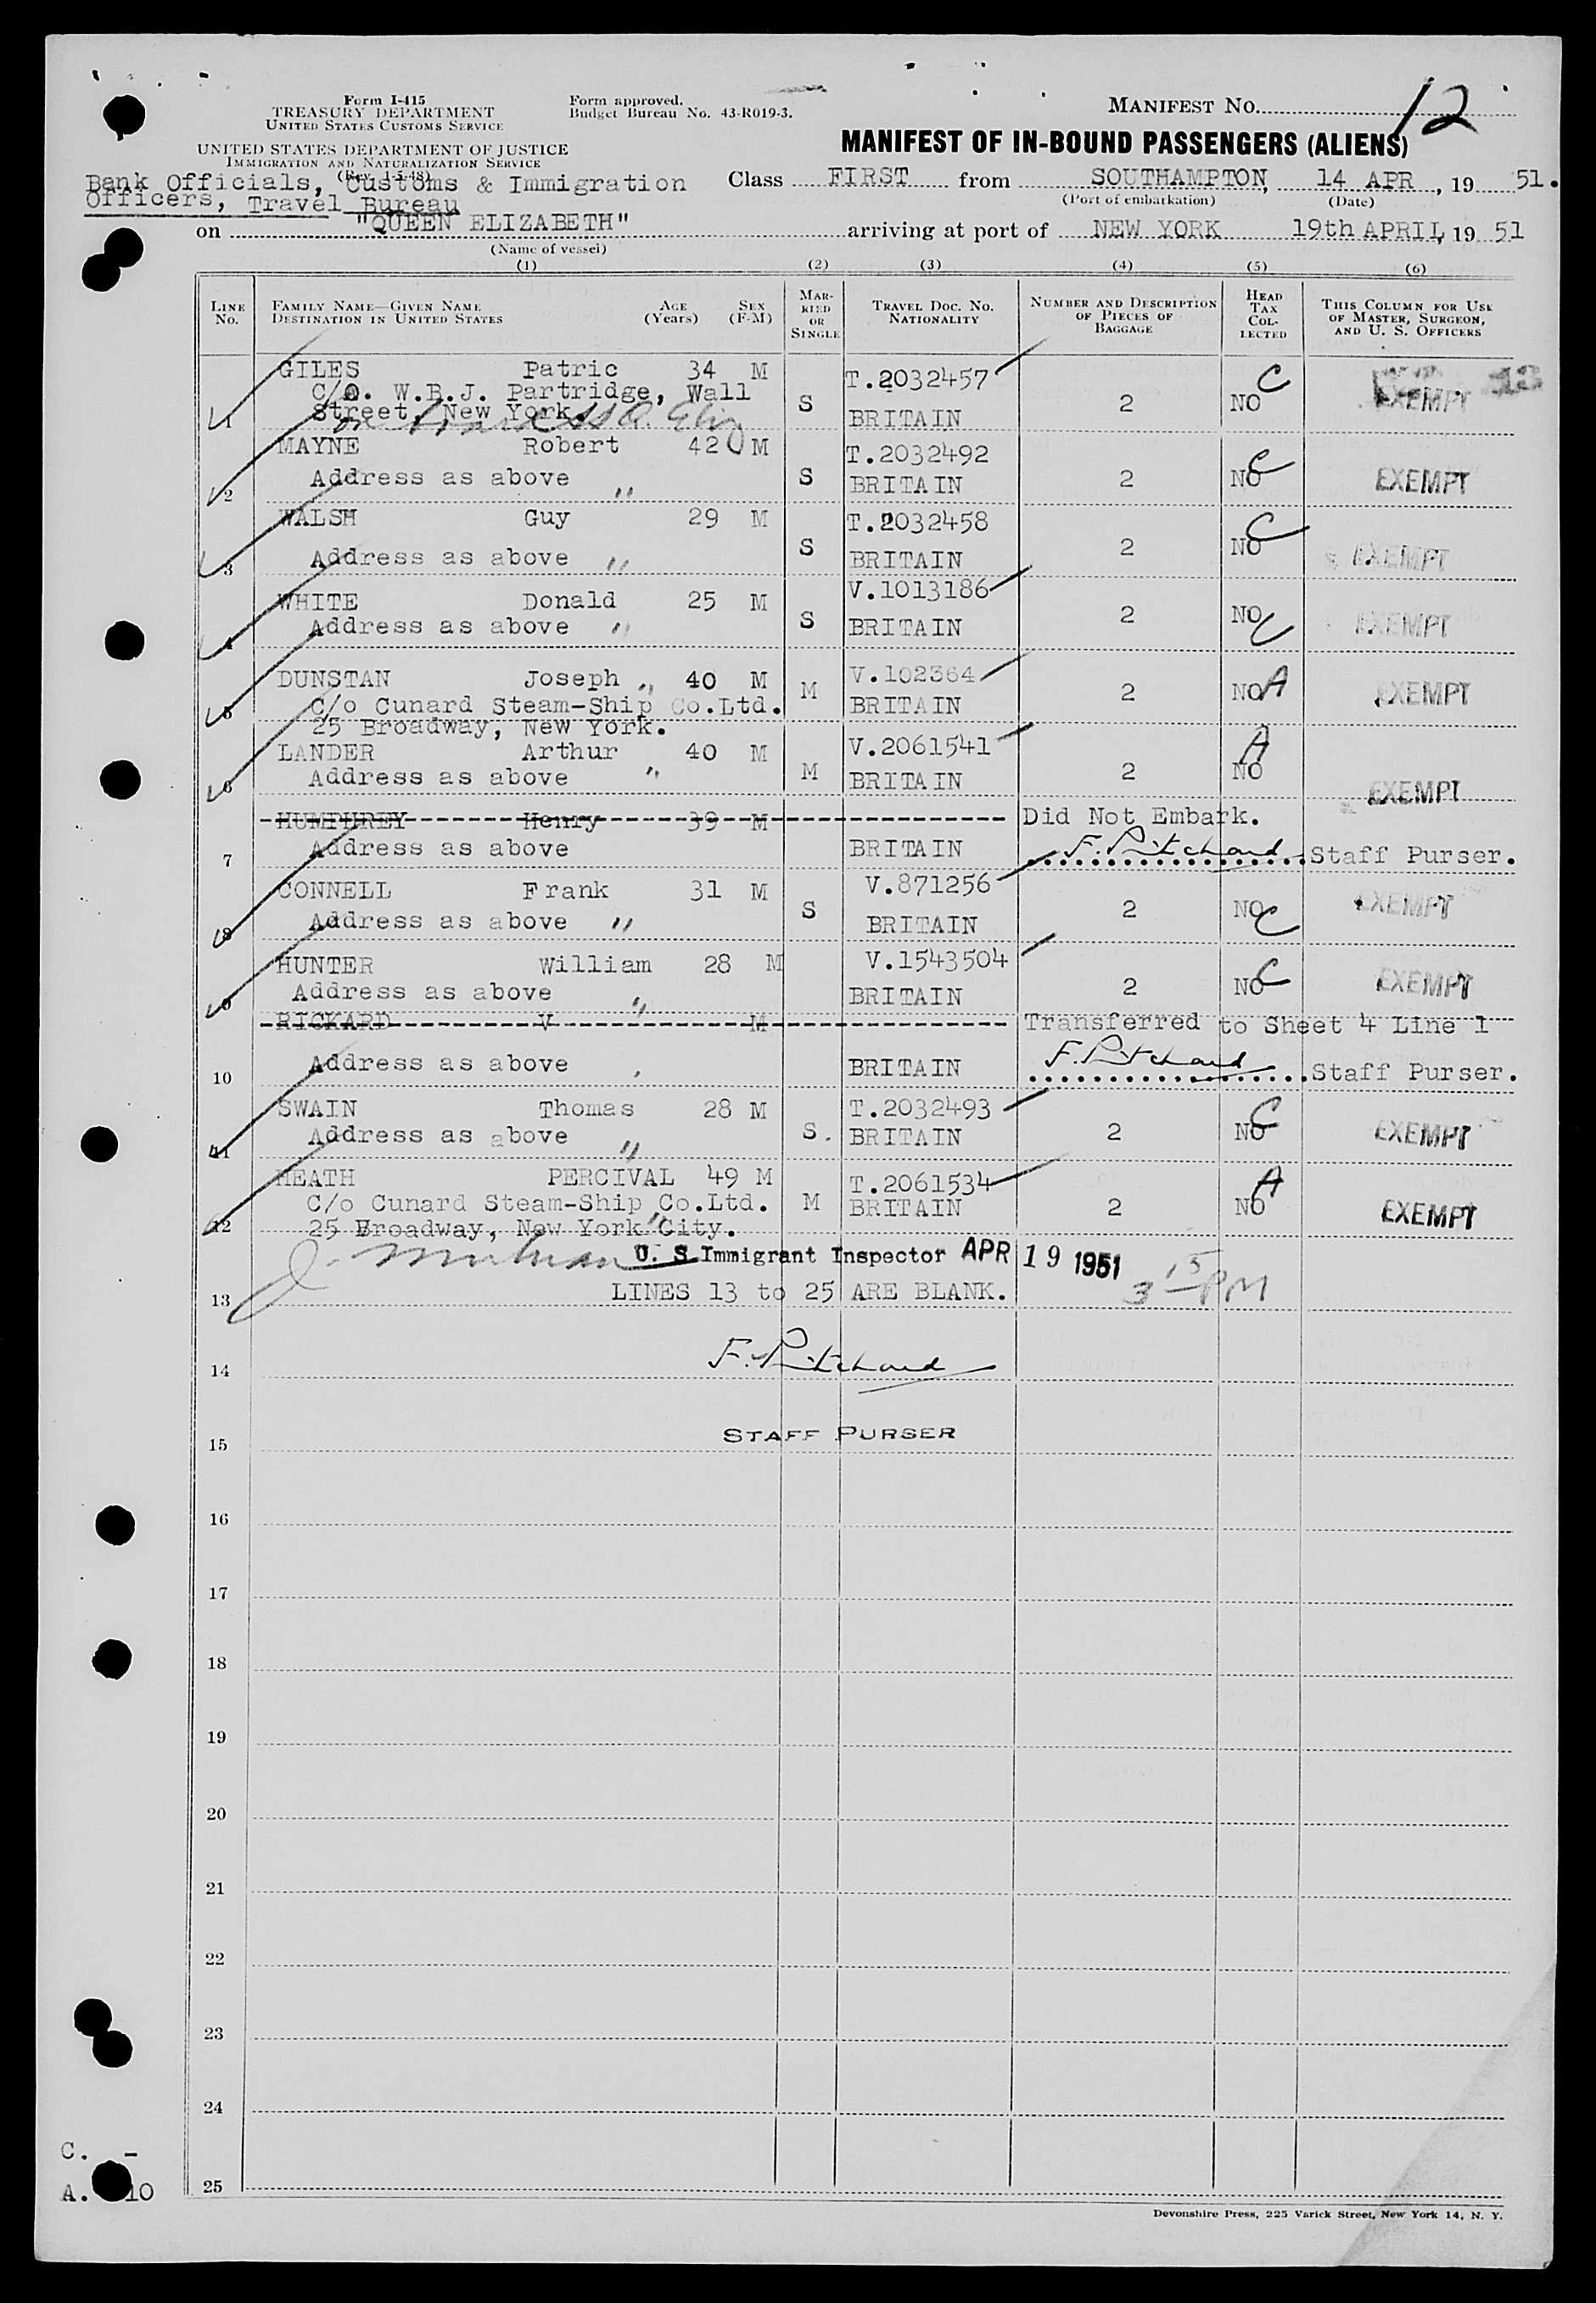 Form I-415
TREASURY DEPARTMENT
UNITED STATES CUSTOMS SERVICE
UNITED STATES DEPARTMENT OF JUSTICE
IMMIGRATION AND NATURALIZATION SERVICE
(Rev. 1-5-48)
Form approved.
Budget Bureau No. 43-R019-3.
MANIFEST NO. 12
MANIFEST OF IN-BOUND PASSENGERS (ALIENS)
Bank Officials, Customs & Immigration
Officers, Travel Bureau
Class FIRST from SOUTHAMPTON, 14 APR, 19 51.
(Port of embarkation) (Date)
on "QUEEN ELIZABETH" arriving at port of NEW YORK 19th APRIL, 19 51
(Name of vessel)
(1) (2) (3) (4) (5) (6)
LINE NO. FAMILY NAME—GIVEN NAME DESTINATION IN UNITED STATES AGE (Years) SEX (F-M) MARRIED OR SINGLE TRAVEL DOC. NO. NATIONALITY NUMBER AND DESCRIPTION OF PIECES OF BAGGAGE HEAD TAX COLLECTED THIS COLUMN FOR USE OF MASTER, SURGEON, AND U. S. OFFICERS
GILES Patric 34 M T.2032457 C
C/O. W.B.J. Partridge, Wall S 2 NO EXEMPT
1 Street, New York. BRITAIN
MAYNE Robert 42 M T.2032492 C
2 Address as above " S BRITAIN 2 NO EXEMPT
WALSH Guy 29 M T.2032458 C
3 Address as above " S BRITAIN 2 NO EXEMPT
WHITE Donald 25 M V.1013186
4 Address as above " S BRITAIN 2 NO C EXEMPT
DUNSTAN Joseph " 40 M V.102364
5 C/o Cunard Steam-Ship Co.Ltd. M BRITAIN 2 NO A EXEMPT
25 Broadway, New York.
LANDER Arthur 40 M V.2061541 A
6 Address as above " M BRITAIN 2 NO EXEMPT
HUMPHREY Henry 39 M Did Not Embark.
7 Address as above BRITAIN F. Pritchard Staff Purser.
CONNELL Frank 31 M V.871256
8 Address as above " S BRITAIN 2 NO C EXEMPT
HUNTER William 28 M V.1543504
9 Address as above " BRITAIN 2 NO C EXEMPT
RICKARD V M Transferred to Sheet 4 Line 1
10 Address as above BRITAIN F. Pritchard Staff Purser.
SWAIN Thomas 28 M T.2032493 C
11 Address as above " S. BRITAIN 2 NO EXEMPT
HEATH PERCIVAL 49 M T.2061534 A
C/o Cunard Steam-Ship Co.Ltd. M BRITAIN 2 NO EXEMPT
12 25 Broadway, New York City.
U. S Immigrant Inspector APR 19 1951
3 15 PM
13 LINES 13 to 25 ARE BLANK.
14 F. Pritchard
15 STAFF PURSER
16
17
18
19
20
21
22
23
24
25
C. -
A. 10
Devonshire Press, 225 Varick Street, New York 14, N. Y.